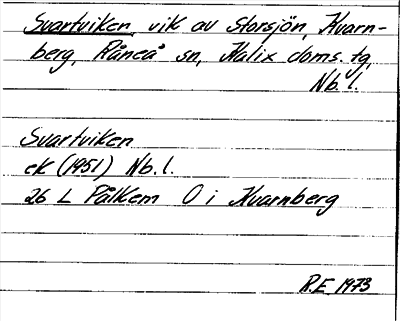 Svartviken, vik av Storsjön, Kvarn-
berg, Råneå sn, Kalix doms. tg,
Nb. l.
Svartviken
ek (1951) Nb. l.
26 L Pålkem O i Kvarnberg
R.E. 1973